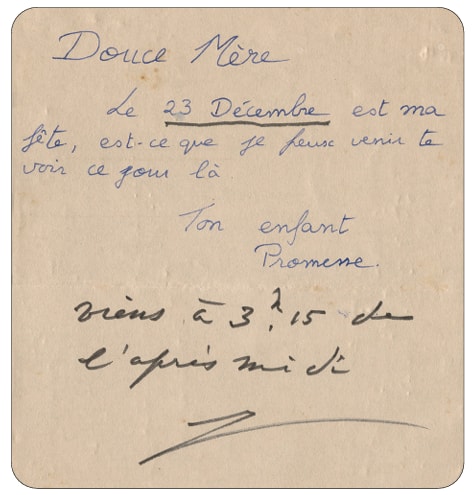 Douce Mère
Le 23 Décembre est ma
fête, est-ce que je peux venir te
voir ce jour là
Ton enfant
Promesse.
viens à 3h.15 de
l'après midi